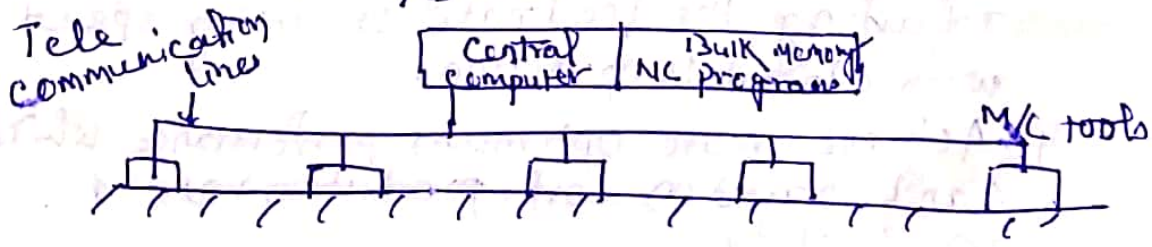 Tele
communication
lines
Central
computer
Bulk memory
NC programs
M/C tools